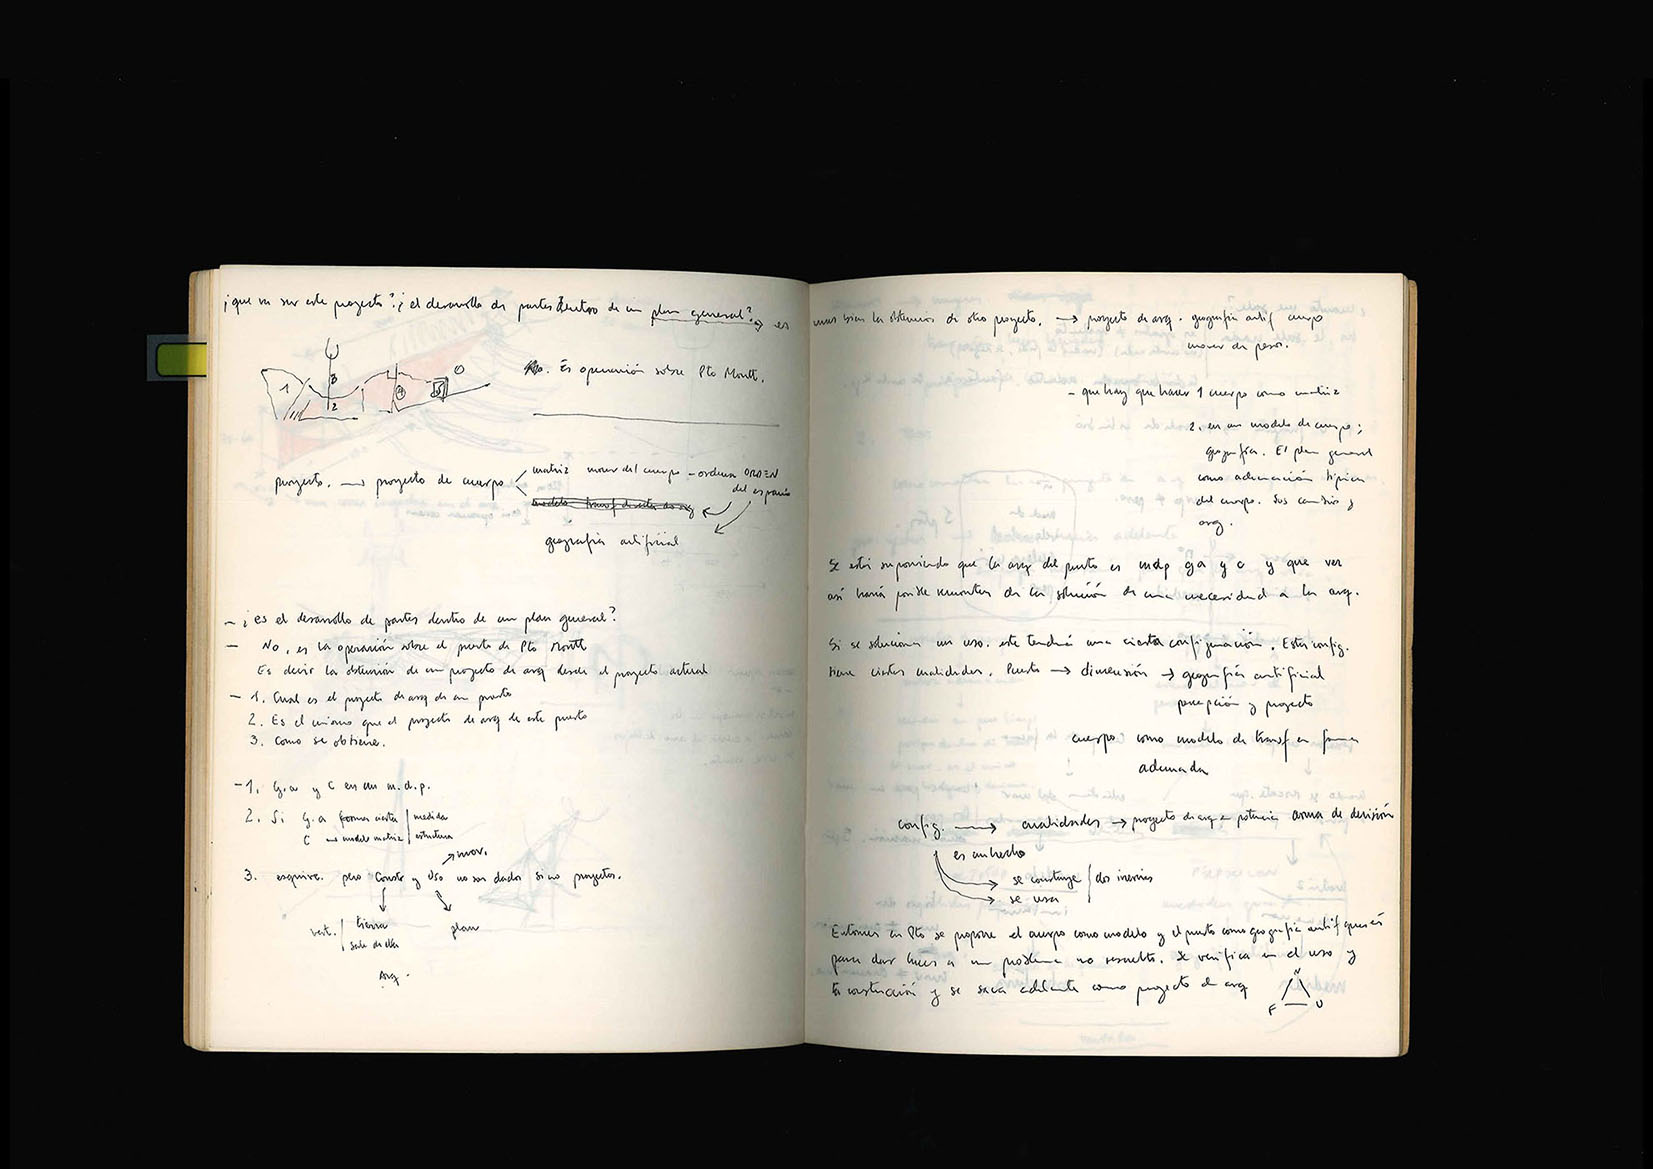 ¿que va ser este proyecto? ¿el desarrollo de partes dentro de un plan general? → es
1 3 2 4 5
No. Es operación sobre Pto Montt.
proyecto. → proyecto de cuerpo
matriz mover del cuerpo - ordena ORDEN
del espacio
modelo transf directa de arq
geografía artificial
- ¿es el desarrollo de partes dentro de un plan general?
- No, es la operación sobre el puerto de Pto Montt
Es decir la obtención de un proyecto de arq desde el proyecto actual
- 1. Cual es el proyecto de arq de un puerto
2. Es el mismo que el proyecto de arq de este puerto
3. Como se obtiene.
- 1. G.a y C en un m.d.p.
2. Si G.a forma cierta / medida
C → modelo matriz / estructura
→ mov.
3. esquive. pero Constr y Uso no son dados si no proyectos.
vert. / tierra
sale de ella
plan
Arq.
la obtención de otro proyecto. → proyecto de arq. geografía artif cuerpo
mover de pesos.
- que hay que hacer 1 cuerpo como matriz
2. en un modelo de cuerpo;
geografía. El plan general
como adecuación típica
del cuerpo. Sus cambios y
arq.
Se está suponiendo que la arq del puerto es mdp ga y c y que ver
así haría posible remontar de la solución de una necesidad a la arq.
Si se soluciona un uso. este tendrá una cierta configuración. Esta config.
tiene ciertas cualidades. Puerto → dimensión → geografía artificial
percepción y proyecto
cuerpo como modelo de transf en forma
adecuada
config. → cualidades → proyecto de arq en potencia arma de decisión
es un hecho
→ se construye / dos inercias
→ se usa
Entonces en Pto se propone el cuerpo como modelo y el puerto como geografía artif que es
para dar luces a un problema no resuelto. Se verifica en el uso y
la construcción y se saca adelante como proyecto de arq
F U